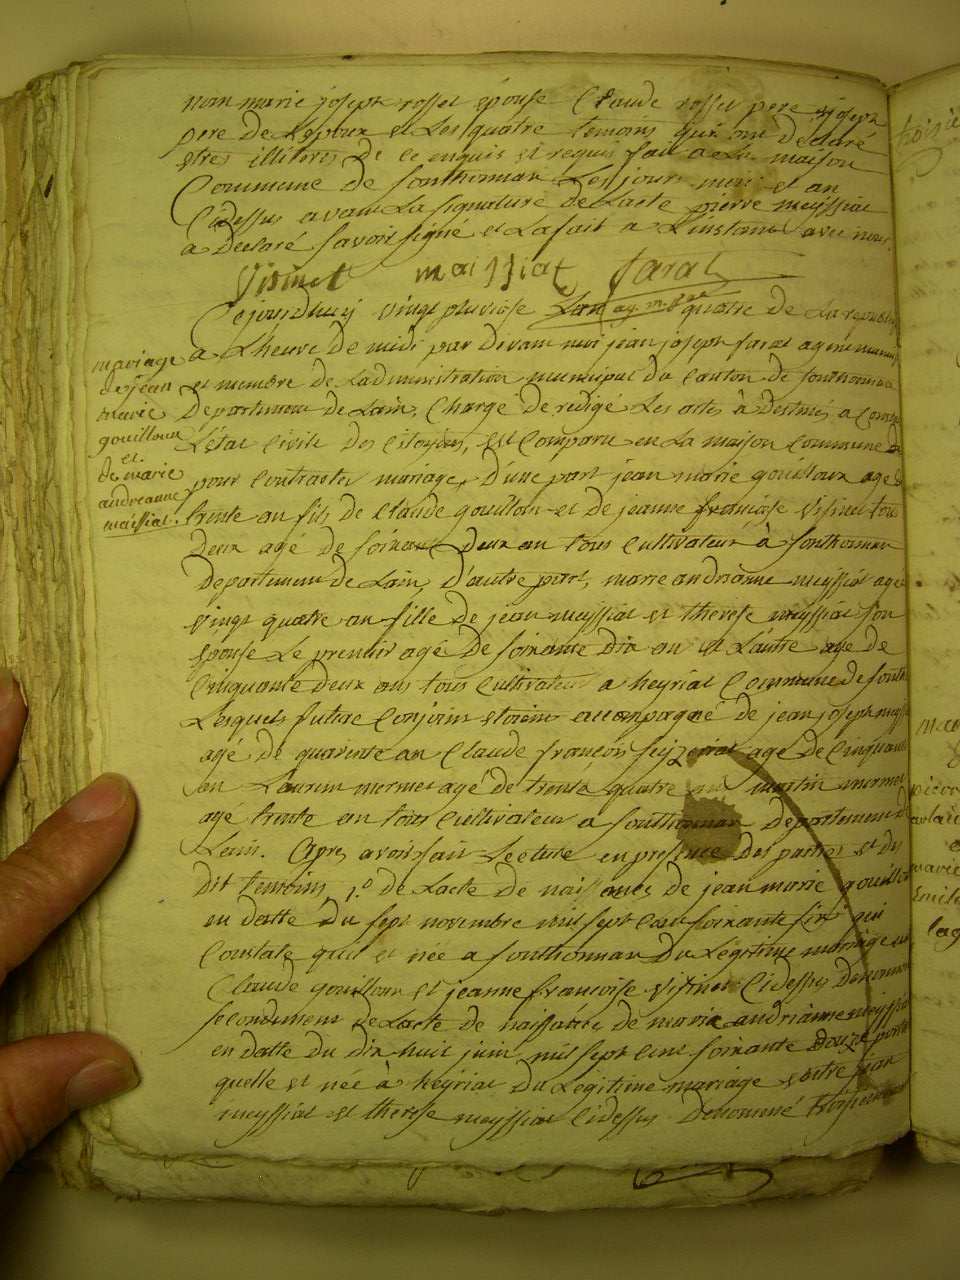 non marie joseph rosset épouse Claude rosset pere joseph
pere de Lepoux et Les quatre temoins qui ont Déclaré
etres illiteres de ce enquis et requis fait a La maison
Commune de sonthonnan Les jours mois et an
Cidessus avant La signature de Lacte pierre meyssiat
a Declaré savoir signé et La fait a Linstant avec nous
Visinet maissiat farat
Cejourdhuy vingt pluviose Lan quatre de La republi
a Lheure de midi par devant moi jean joseph farat agent muni
et membre de Ladministration municipal du Canton de sonthonnan
Departement de Lain, Chargé de redigé Les actes à destinés a Const
Létat Civile des Citoyens, est Comparu en La maison Commune
pour Contracter mariage, D'une part jean marie gouilloux age
trente an fils de Claude gouilloux et de jeanne françoise Visinet tou
Deux agé de soixante Deux an tous Cultivateur à sonthonnan
Departement de Lain, d'autre part, marie andrianne meyssiat age
vingt quatre an fille de jean meyssiat et therese meyssiat son
epouse Le premier agé de soixante dix an et Lautre age de
Cinquante deux ans tous Cultivateur a heyriat Commune de sonth
Lesquels futur Conjoins etoient accompagné de jean joseph meyss
agé de quarente an Claude françois seyzeriat age de Cinquante
an Laurent mermet agé de trente quatre an martin mermet
agé trente an tous Cultivateur a sonthonnan departement de
Lain. Apres avoir fait Lecture en presence des parties et du
dit temoins, 1º de Lacte de naissances de jean marie gouillou
en datte du sept novembre mil sept Cent soixante six qui
Constate quil et née a sonthonnan du Légitime mariage
Claude gouilloux et jeanne françoise Visinet Cidessus denommé
secondement de Lacte de naissance de marie andrianne meyssia
en datte du dix huit juin mil sept Cent soixante douze porte
quelle et née à heyriat du Legitime mariage entre jean
meyssiat et therese meyssiat Cidessus denommé troisiement
mariage
de jean
marie
gouilloux
et
de marie
andreanne
maissiat.
troisie